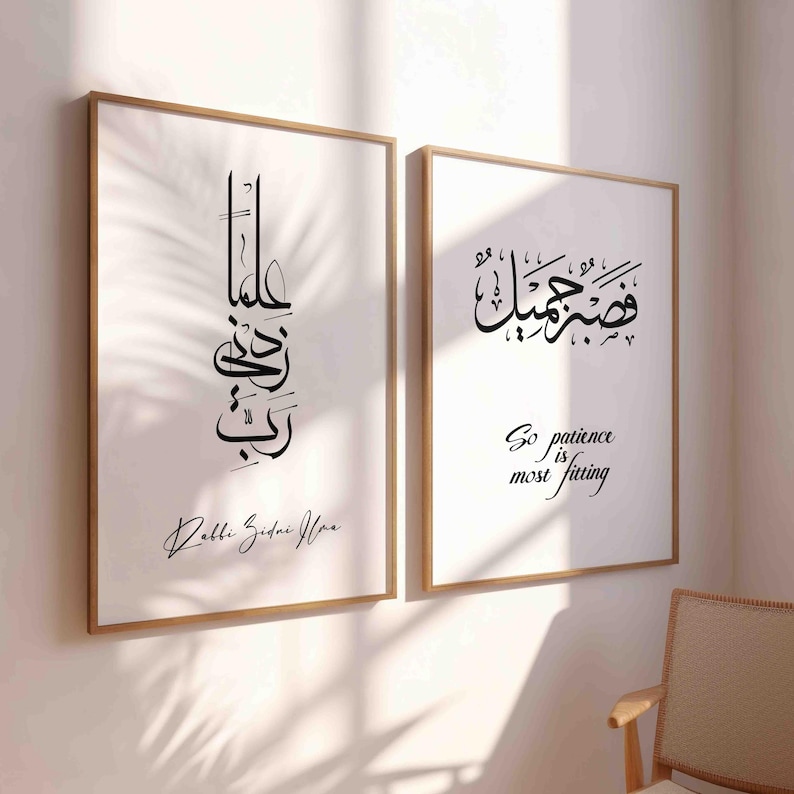 رَبِّ
زدْنِي
عِلْمًا
Rabbi Zidni Ilma
فَصَبْرٌ جَمِيلٌ
So patience
is
most fitting